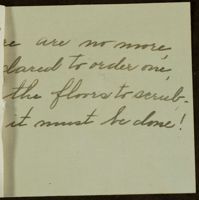 re are no more
dared to order one,
the floors to scrub.
it must be done!